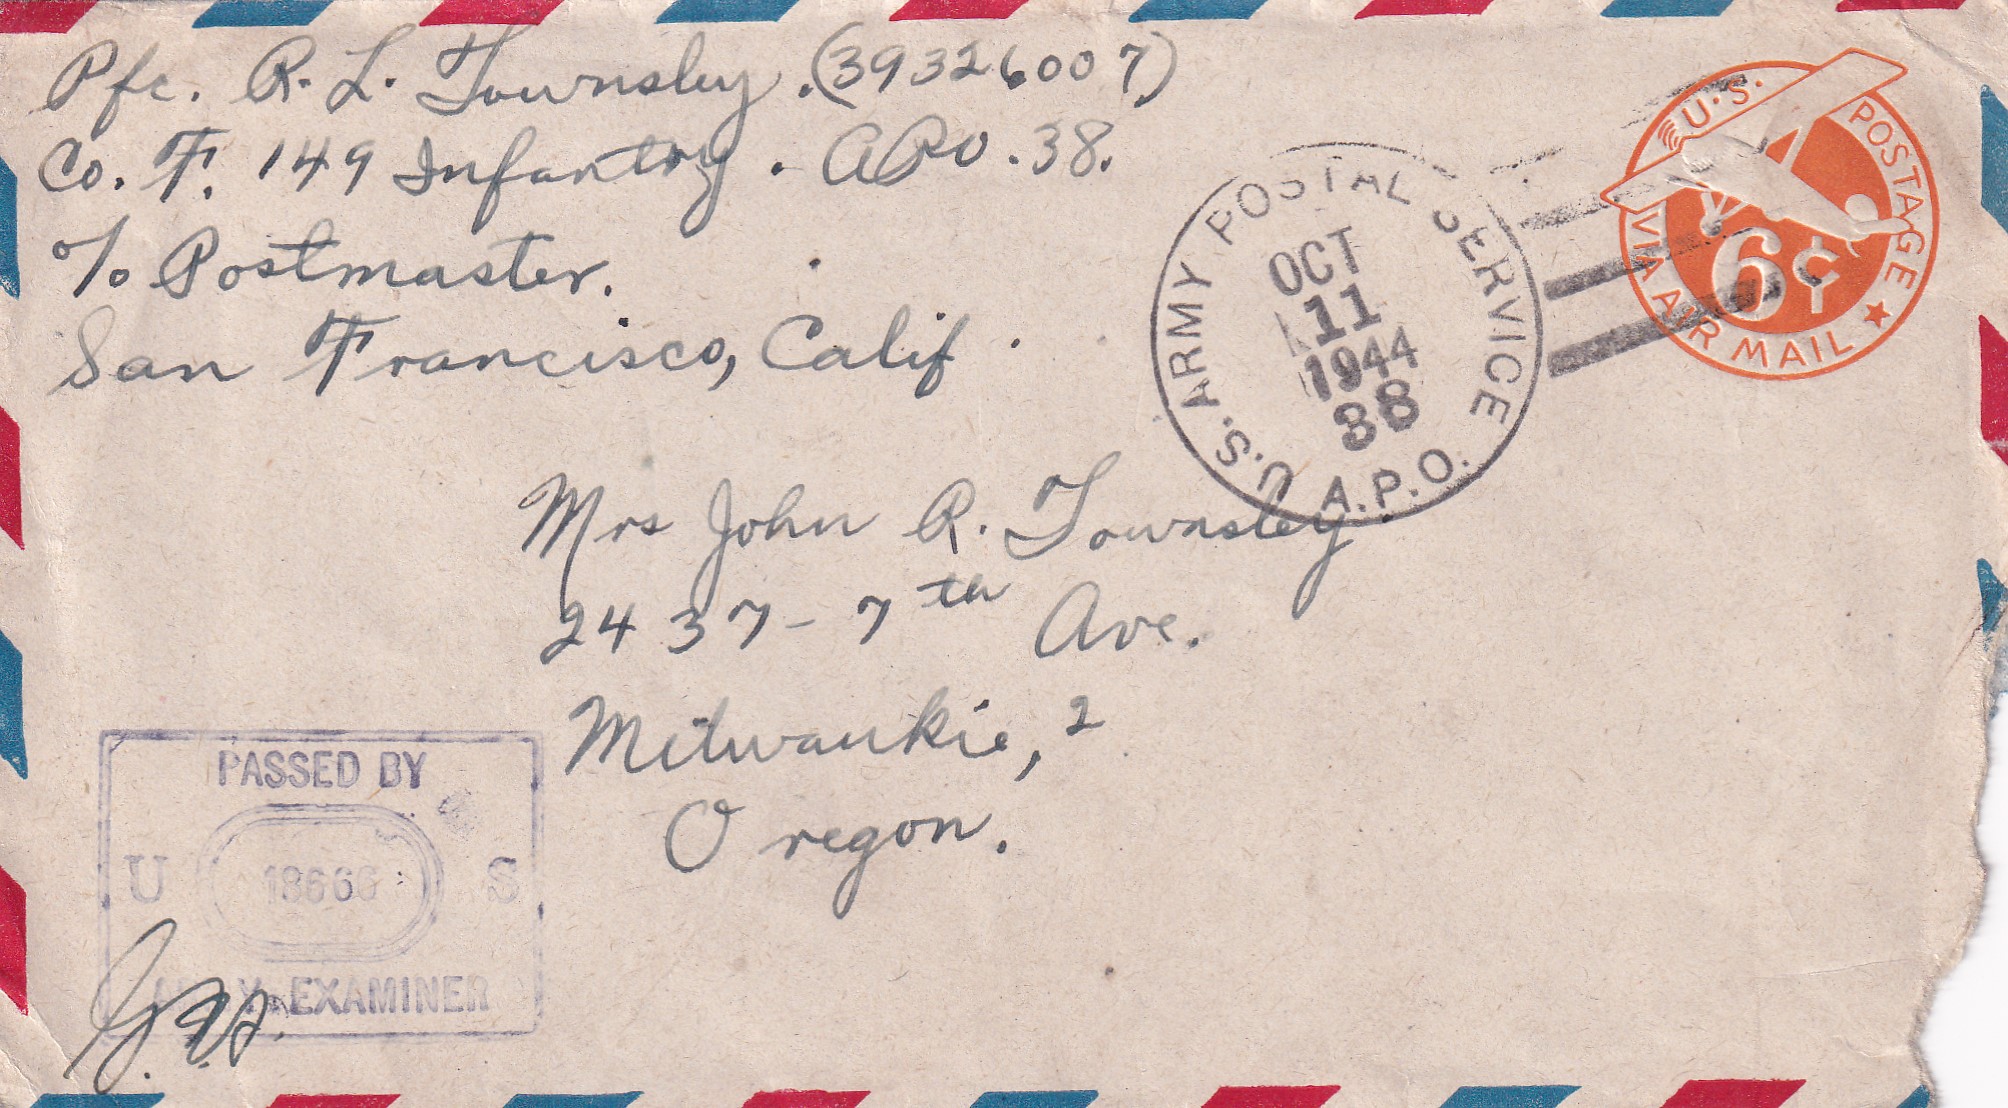 Pfc. R. L. Townsley. (39326007)
Co. F. 149 Infantry. APO. 38.
c/o Postmaster.
San Francisco, Calif.
U.S. ARMY POSTAL SERVICE
OCT
11
1944
38
A.P.O.
U.S. POSTAGE
6¢
VIA AIR MAIL
Mrs John R. Townsley.
2437-7th Ave.
Milwaukie, 2
Oregon.
PASSED BY
U 18666 S
ARMY EXAMINER